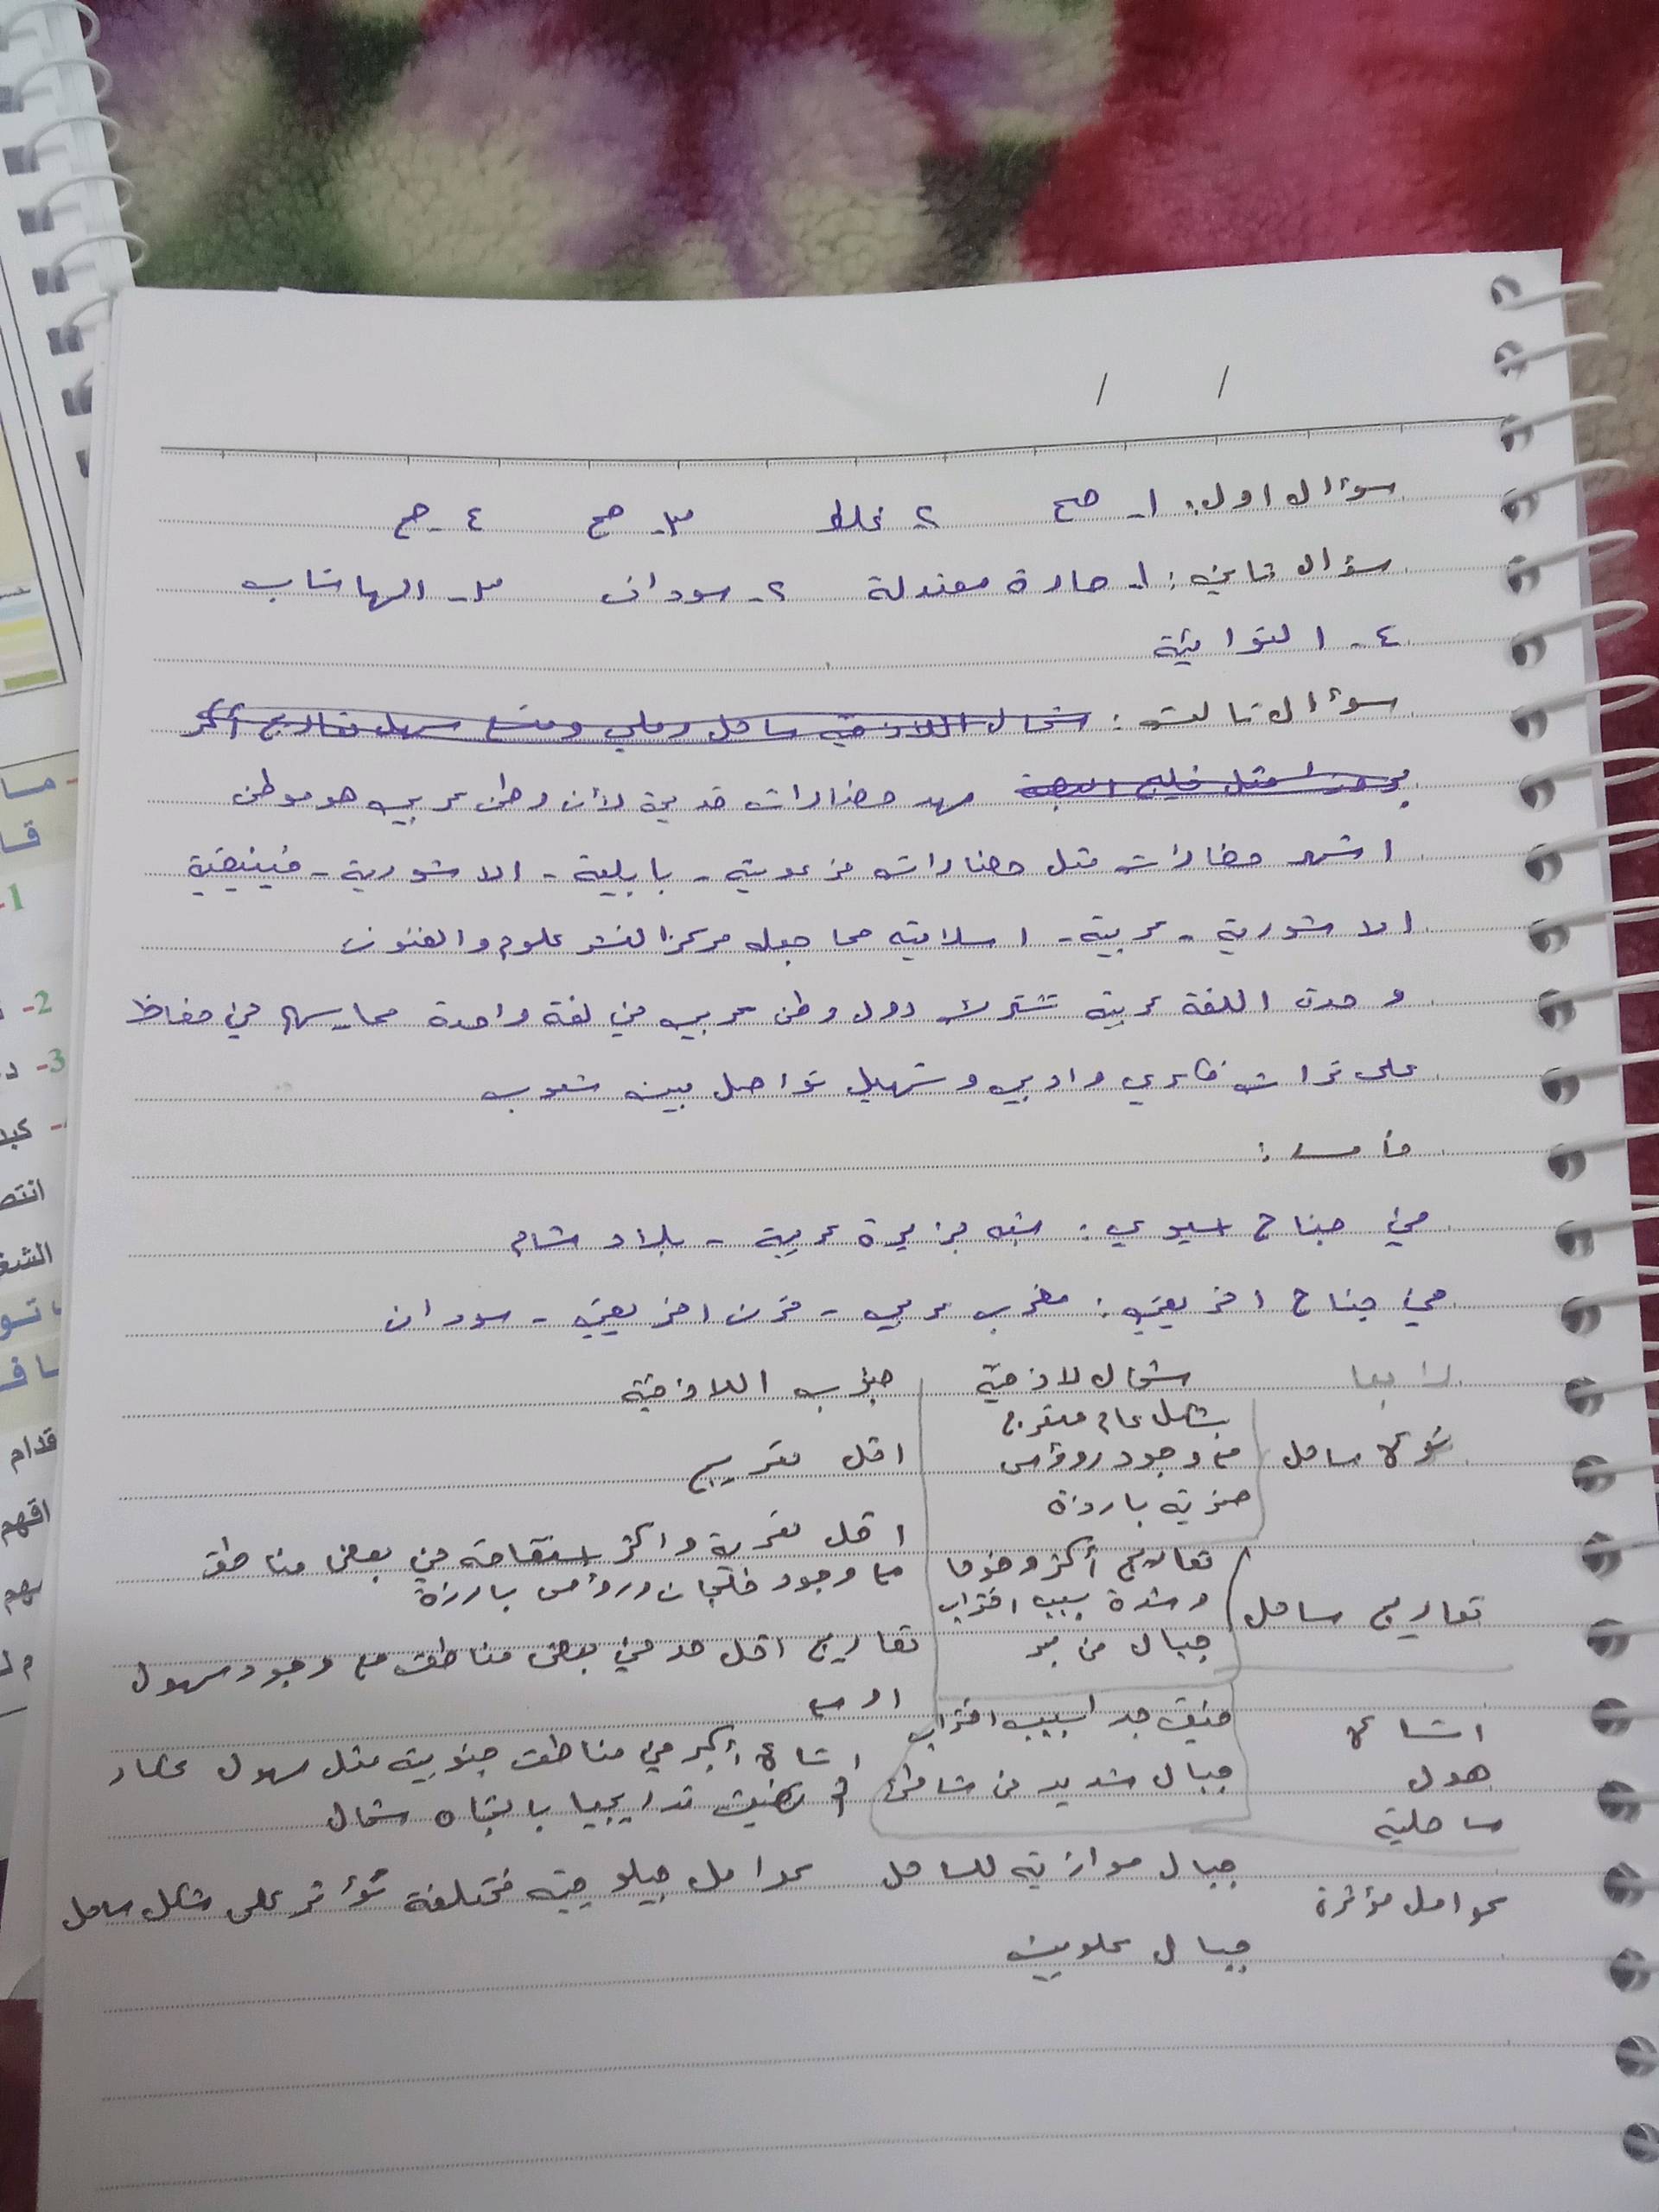 سؤال اول: ١- صح ٢- غلط ٣- صح ٤- صح
سؤال تاني: ١- حارة معتدلة ٢- سودان ٣- الهاشاب
٤-
سؤال تالت: شمال اللاذقية ساحل رملي ومتسع سهل تعاريج أكثر
مهد حضارات قديمة لأن وطن عربي هو موطن
اشهر حضارات متل حضارات فرعونية - بابلية - الاشورية - فينيقية
الاشورية - عربية - اسلامية مما جعله مركزا لنشر علوم والفنون
وحدت اللغة عربية تشترك دول وطن عربي في لغة واحدة مما يسهل في حفاظ
على ترات فكري وادبي وتسهيل تواصل بين شعوب
خامسا:
في جناح اسيوي: شبه جزيرة عربية - بلاد شام
في جناح افريقي: مغرب عربي - قرن افريقي - سودان
رابعا شمال لاذقية جنوب اللاذقية
ساحل بشكل عام متعرج
مع وجود رؤوس اقل تعريج
صخرية بارزة
اقل تعرية واكثر استقامة في بعض مناطق
تعاريج ساحل تعاريج أكثر وضوحا مع وجود خلجان ورؤوس بارزة
وشدة بسبب اقتراب
جبال من بحر تعاريج اقل حد في بعض مناطق مع وجود سهول
اوسع
اتساع ضيق جدا بسبب اقتراب اتساع أكبر في مناطق جنوبية متل سهول عكار
هول جبال شديد من شاطئ تضيق تدريجيا باتجاه شمال
ساحلية
عوامل مؤثرة جبال موازية للساحل عوامل جيلوجية مختلفة تؤثر على شكل ساحل
جبال علويين